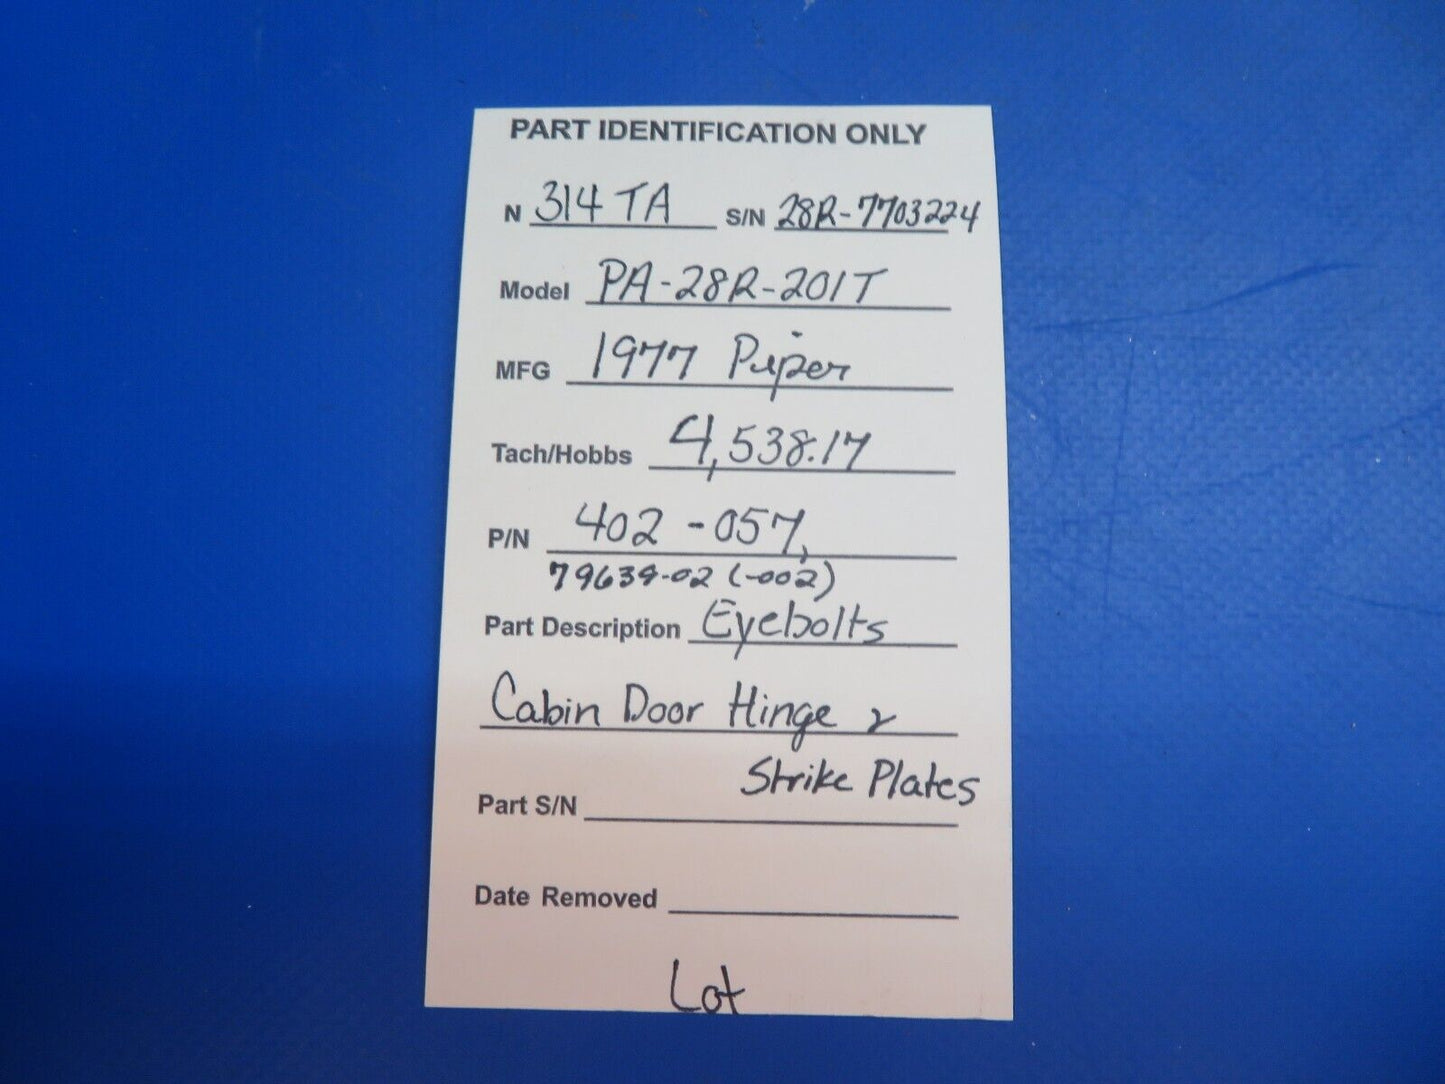 PART IDENTIFICATION ONLY
N 314TA S/N 28R-7703224
Model PA-28R-201T
MFG 1977 Piper
Tach/Hobbs 4,538.17
P/N 402-057,
79639-02 (-002)
Part Description Eyebolts
Cabin Door Hinge &
Strike Plates
Part S/N
Date Removed
Lot